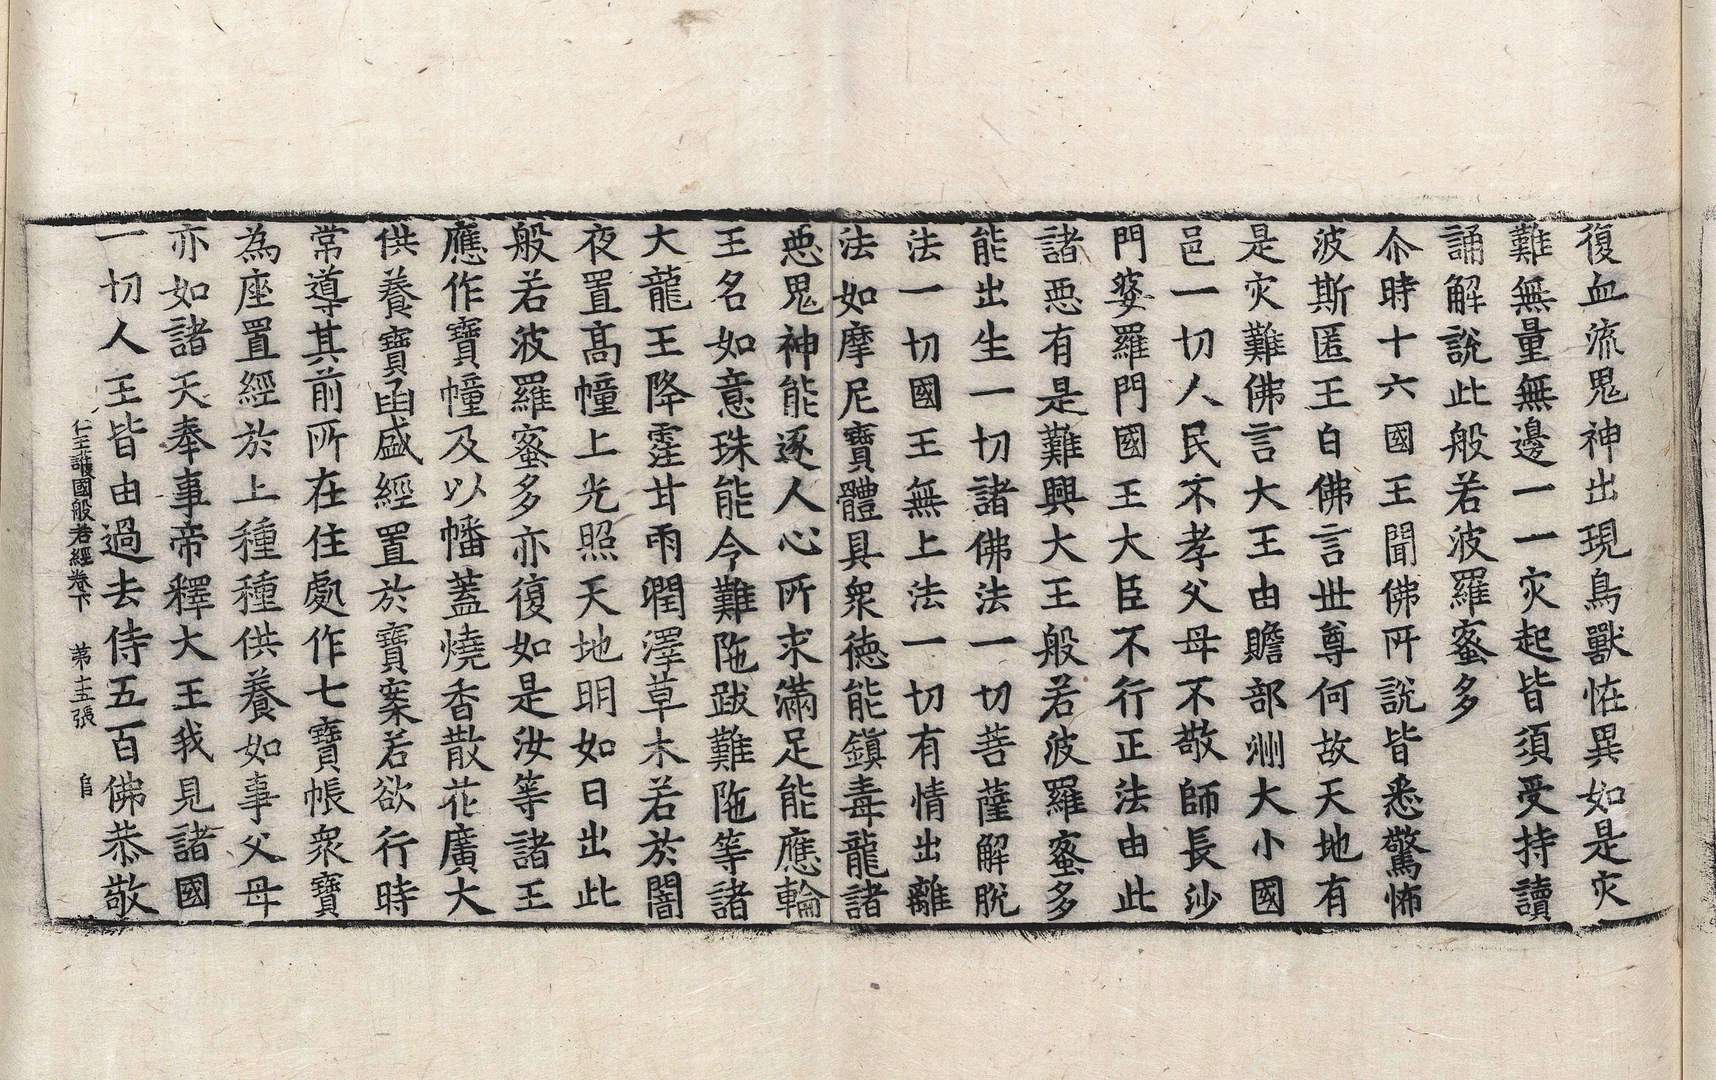 復血流鬼神出現鳥獸恠異如是灾
難無量無邊一一灾起皆須受持讀
誦解説此般若波羅蜜多
尒時十六國王聞佛所説皆悉驚怖
波斯匿王白佛言世尊何故天地有
是灾難佛言大王由贍部洲大小國
邑一切人民不孝父母不敬師長沙
門婆羅門國王大臣不行正法由此
諸惡有是難興大王般若波羅蜜多
能出生一切諸佛法一切菩薩解脱
法一切國王無上法一切有情出離
法如摩尼寶體具衆徳能鎮毒龍諸
惡鬼神能逐人心所求滿足能應輪
王名如意珠能令難陁跋難陁等諸
大龍王降霔甘雨潤澤草木若於闇
夜置髙幢上光照天地明如日出此
般若波羅蜜多亦復如是汝等諸王
應作寶幢及以幡蓋燒香散花廣大
供養寶函盛經置於寶案若欲行時
常導其前所在住處作七寶帳衆寶
為座置經於上種種供養如事父母
亦如諸天奉事帝釋大王我見諸國
一切人王皆由過去侍五百佛恭敬
仁王護國般若經卷下 第十五張